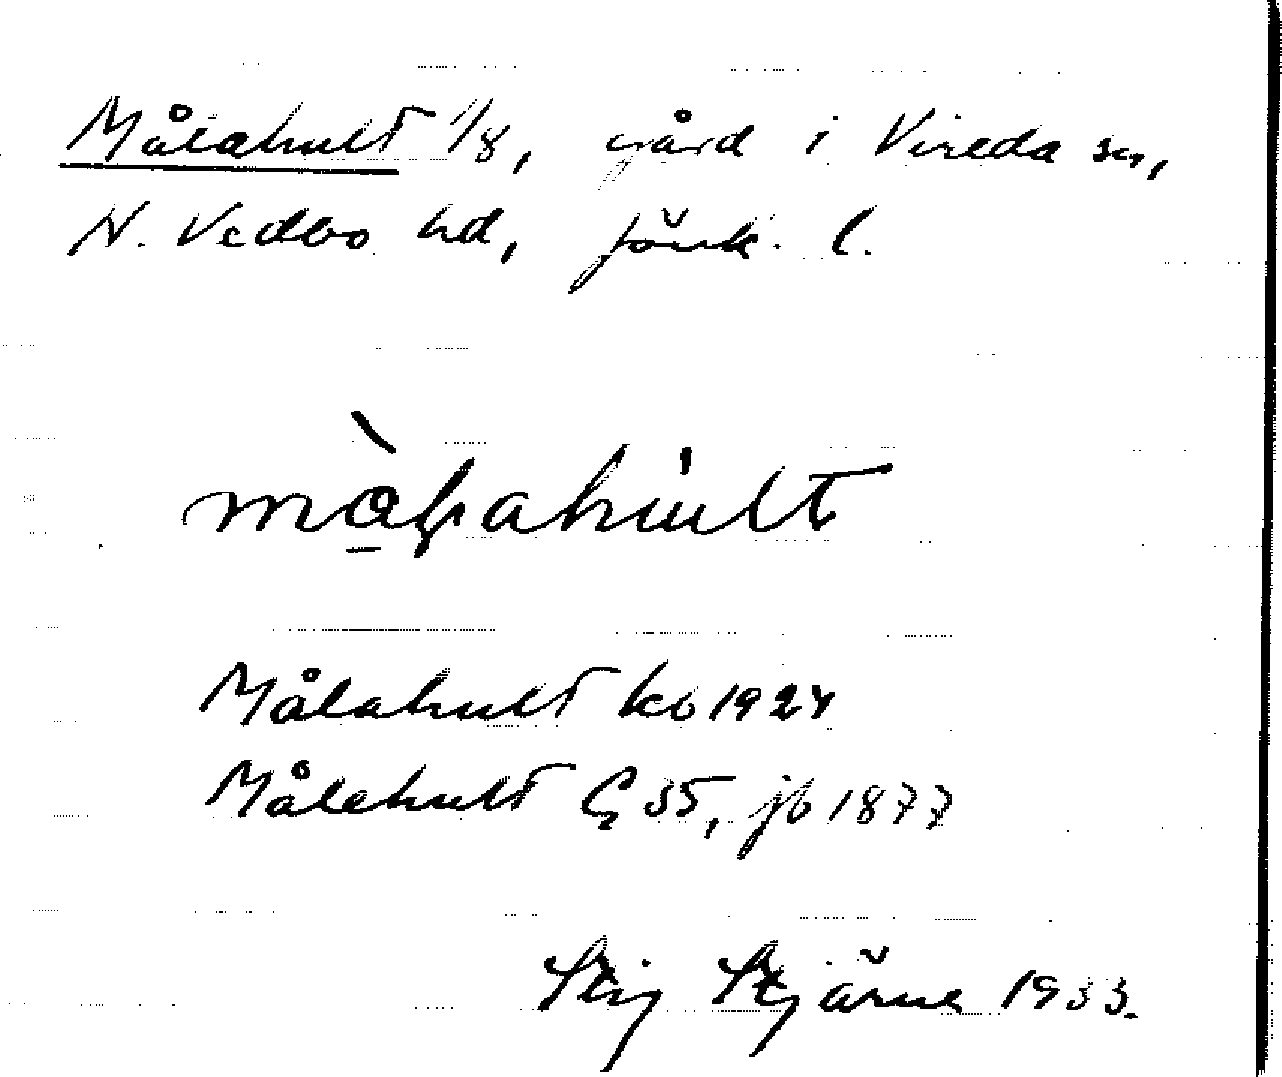 Målahult 1/8, gård i Vireda sn,
N. Vedbo hd, Jönk. l.
Målahult kb 1924
Målahult G 35, jb 1877
Stig Stjärne 1933.